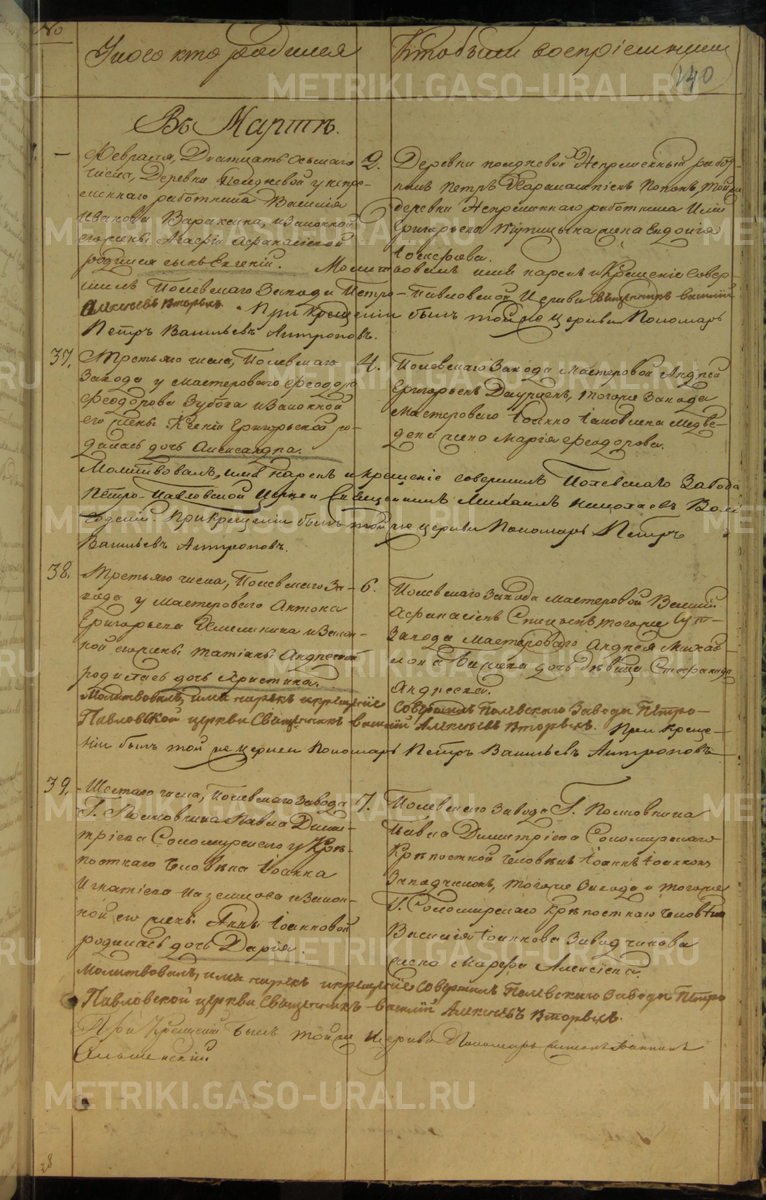 No
У кого кто родился
Кто были воспріемники
140
Въ Мартѣ.
Февраля, Двадцать осьмаго
числа, Деревни Полдневой у непре-
меннаго работника Василія
Иванова Варакина, и законной
его жены Агафіи Афанасіевой
родился сынъ Евгеній.
2.
Деревни полдневой Непременный работ-
никъ Петръ
деревни Непременнаго работника Иліи
Григорьева жена Евдокія
Молитвовалъ имя нарекъ и крещеніе совер-
шилъ Полевскаго Завода Петро-Павловской Церкви Священникъ Василій
Алексѣевъ Вторыхъ. При крещеніи былъ той же церкви Пономарь
Петръ Васильевъ Антроповъ.
37.
Третьяго числа, Полевскаго
Завода у мастероваго Феодора
Феодорова Зубова и законной
его жены Ксеніи Григорьевой ро-
дилась дочь Александра.
4.
Полевскаго Завода Мастеровой Андрей
Григорьевъ тогоже Завода
Мастероваго Іоанна Іаковлева Медвѣ-
дева жена Марія Феодорова.
Молитвовалъ, имя нарекъ и крещеніе совершилъ Полевскаго Завода
Петро-Павловской Церкви Священникъ Михаилъ Николаевъ
При крещеніи былъ той же церкви Пономарь Петръ
Васильевъ Антроповъ.
38.
Третьяго числа, Полевскаго За-
вода у мастероваго Антона
Григорьева и закон-
ной его жены Татіаны Андреевой
родилась дочь Христина.
6.
Полевскаго Завода мастеровой Василій
Афанасіевъ тогоже
Завода Мастероваго Андрея Михай-
лова дочь Дѣвица Стефанида
Андреева.
Молитвовалъ, имя нарекъ и крещеніе совершилъ Полевскаго Завода Петро-
Павловской церкви Священникъ Василій Алексѣевъ Вторыхъ. При креще-
ніи былъ той же церкви Пономарь Петръ Васильевъ Антроповъ
39.
Шестаго числа, Полевскаго Завода
Г. Полковника Павла Дими-
тріева Соломирскаго у Крѣ-
постнаго человѣка Іоанна
Игнатіева и закон-
ной его жены Анны Іоанновой
родилась дочь Дарія.
7.
Полевскаго Завода Г. Полковника
Павла Димитріева Соломирскаго
Крѣпостной человѣкъ Іоаннъ Іоанновъ
Заводчиковъ, тогоже Завода и тогоже
Г. Соломирскаго Крѣпостнаго человѣка
Василія Іоаннова Заводчикова
жена Марфа Алексіева.
Молитвовалъ, имя нарекъ и крещеніе совершилъ Полевскаго Завода Петро
Павловской церкви Священникъ Василій Алексѣевъ Вторыхъ.
При крещеніи былъ той же Церкви Пономарь
METRIKI.GASO-URAL.RU